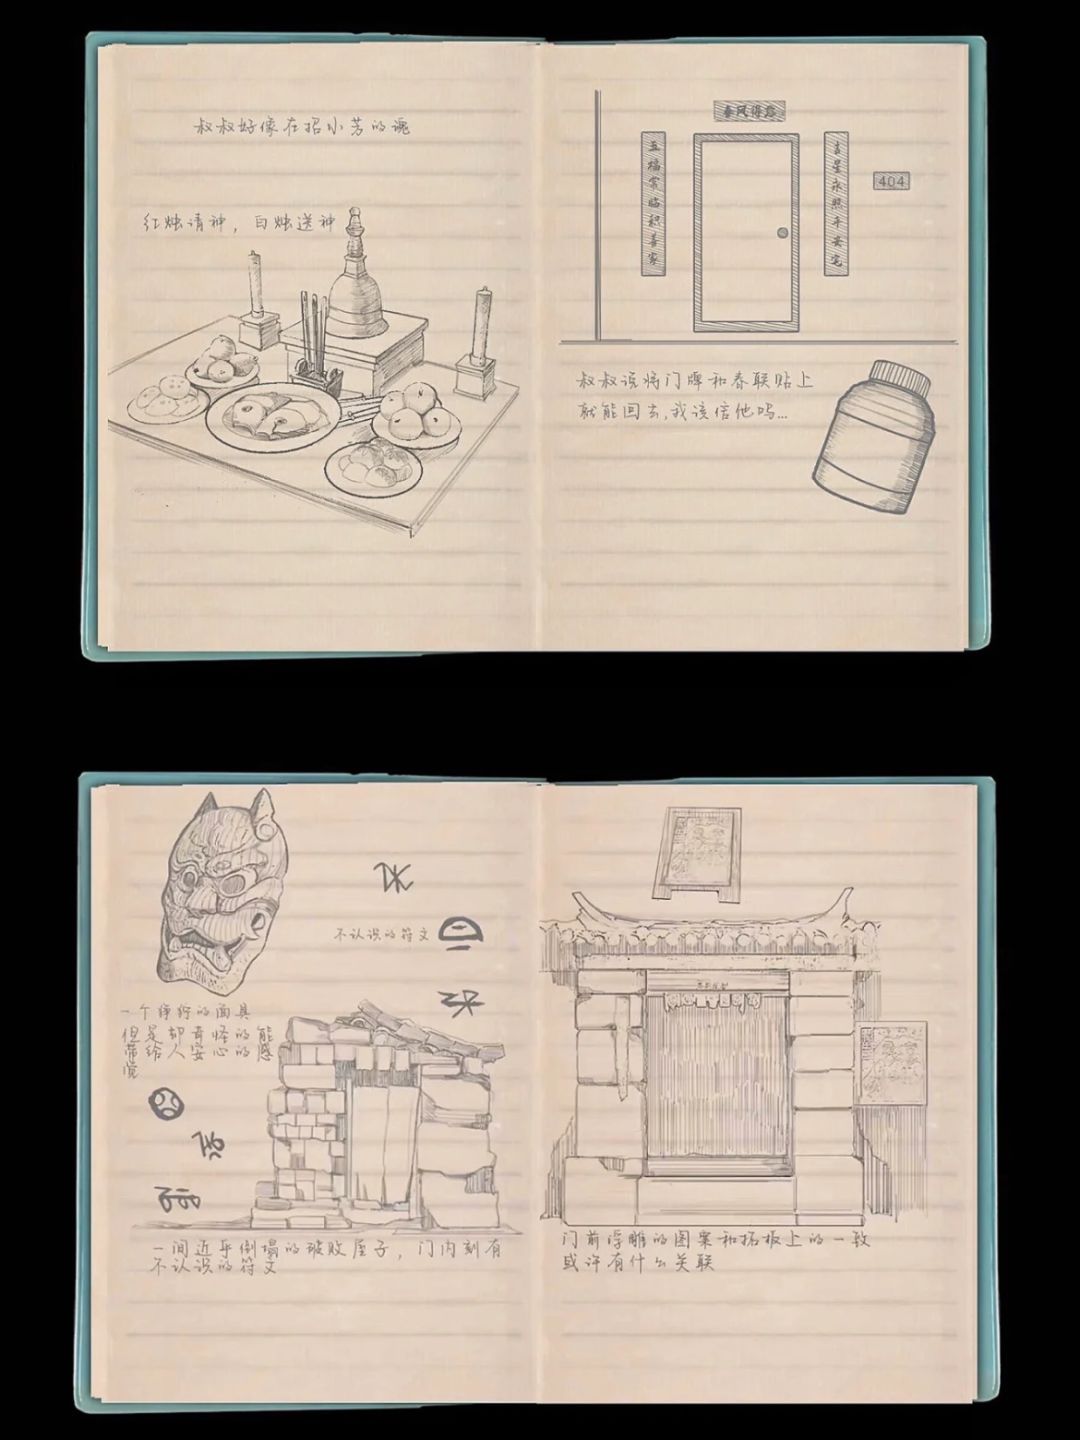 叔叔好像在招小芳的魂
红烛请神，白烛送神
春风得意
五福常临积善家
吉星永照平安宅
404
叔叔说将门牌和春联贴上
就能回去，我该信他吗...
不认识的符文
一个狰狞的面具
但是却奇怪的能
带给人安心的感
觉
一间近乎倒塌的破败屋子，门内刻有
不认识的符文
门前浮雕的图案和拓板上的一致
或许有什么关联